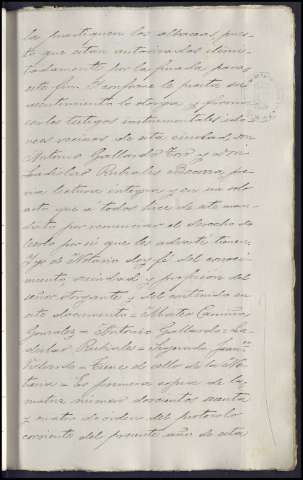 la practiquen los albaceas pues-
to que estan autorizados ilimi-
tadamente por la finada para
este fin. Tampoco le presta su
asentimiento lo otorga y firma
con los testigos instrumentales ido-
neos vecinos de esta ciudad don
Antonio Gallardo y don
Ladislao Rubiales
lectura integra y en un solo
acto que a todos hice de este man-
dato por renunciar el derecho de
leerlo por si que les adverti tienen.
Yo el Notario doy fé del conoci-
miento, vecindad y profesion del
señor otorgante y del contenido en
este documento = Mateo
Gonzalez = Antonio Gallardo = La-
dislao Rubiales = Signado, Juan
= Tiene el sello de la No-
taria = Es primera copia de la
matriz número doscientos
y cuatro de orden del protocolo
corriente del presente año de esta